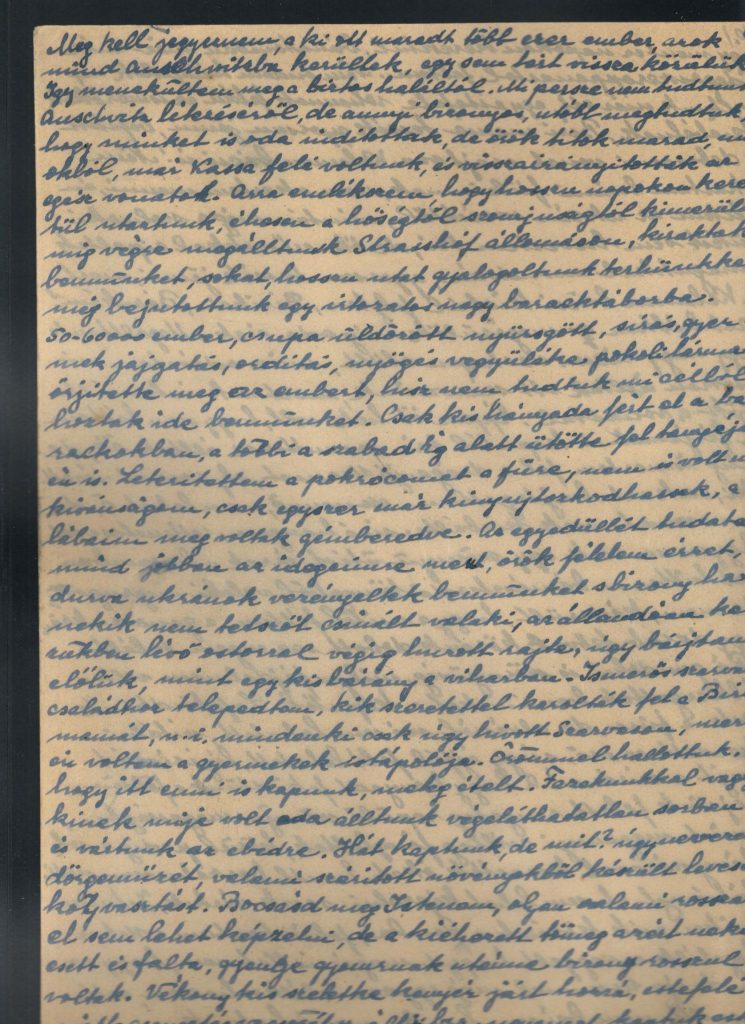 Meg kell jegyeznem, a ki ott maradt több ezer ember, azok
mind Auschvitzba kerültek, egy sem tért vissza közülük
Igy menekültem meg a biztos haláltól. Mi persze nem tudtunk
Auschvitz létezéséről, de annyi bizonyos, utóbb megtudtuk,
hogy minket is oda inditottak, de örök titok marad, mi
okból, már Kassa felé voltunk, és visszairányitották az
egész vonatot. Arra emlékszem, hogy hosszu napokon kere
tül utaztunk, éhesen a hőségtől szomjuságtól kimerült
mig végre megálltunk Strasshóf állomáson, kiraktak
bennünket, sokat, hosszu utat gyalogoltunk terhünkke
még bejutottunk egy irtózatos nagy baracktáborba.
50-60000 ember, csupa üldözött nyüzsgött, sirás, gyer
mek jajgatás, orditás, nyögés vegyüléke pokoli lárma
őrjitette meg az embert, hisz nem tudtuk mi célból
hoztak ide bennünket. Csak kis hányada fért el a ba
rackokban, a többi a szabad ég alatt ütötte fel tanyájá
én is. Leteritettem a pokrócomat a fűre, nem is volt
kivánságom, csak egyszer már kinyujtozkodhassek, a
lábaim meg voltak gémberedve. Az egyedüllét tudata
mind jobban az idegeimre ment, örök félelem érzet,
durva ukránok verényeltek bennünket s bizony ha
nekik nem tetszőt csinált valaki, az állandóan ke
zükben lévő ostorral végig huzott rajta, úgy bújtam
előlük, mint egy kis bárány a viharban. Ismerős szarva
családhoz telepedtem, kik szeretettel karolták fel a Biri
mamát, n.i. mindenki csak úgy hivott Szarvason, mert
én voltam a gyermekek istápolója. Örömmel hallottuk,
hogy itt enni is kapunk, meleg ételt. Fazekunkkal vagy
kinek mije volt oda álltunk végeláthatatlan sorban
és vártunk az ebédre. Hát kaptunk, de mit? úgynevezе
dörgemüzét, valami száritott növényekből készült leves
kotyvasztást. Bocsásd meg Istenem, olyan valami rossz
el sem lehet képzelni, de a kiéhezett tömeg azért neki
esett és falta, gyenge gyomruak utánna bizony rosszul
voltak. Vékony kis szeletke kenyér járt hozzá, estefelé